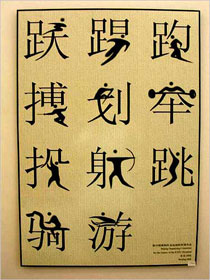 跃 踢 跑
搏 划 举
投 射 跳
骑 游